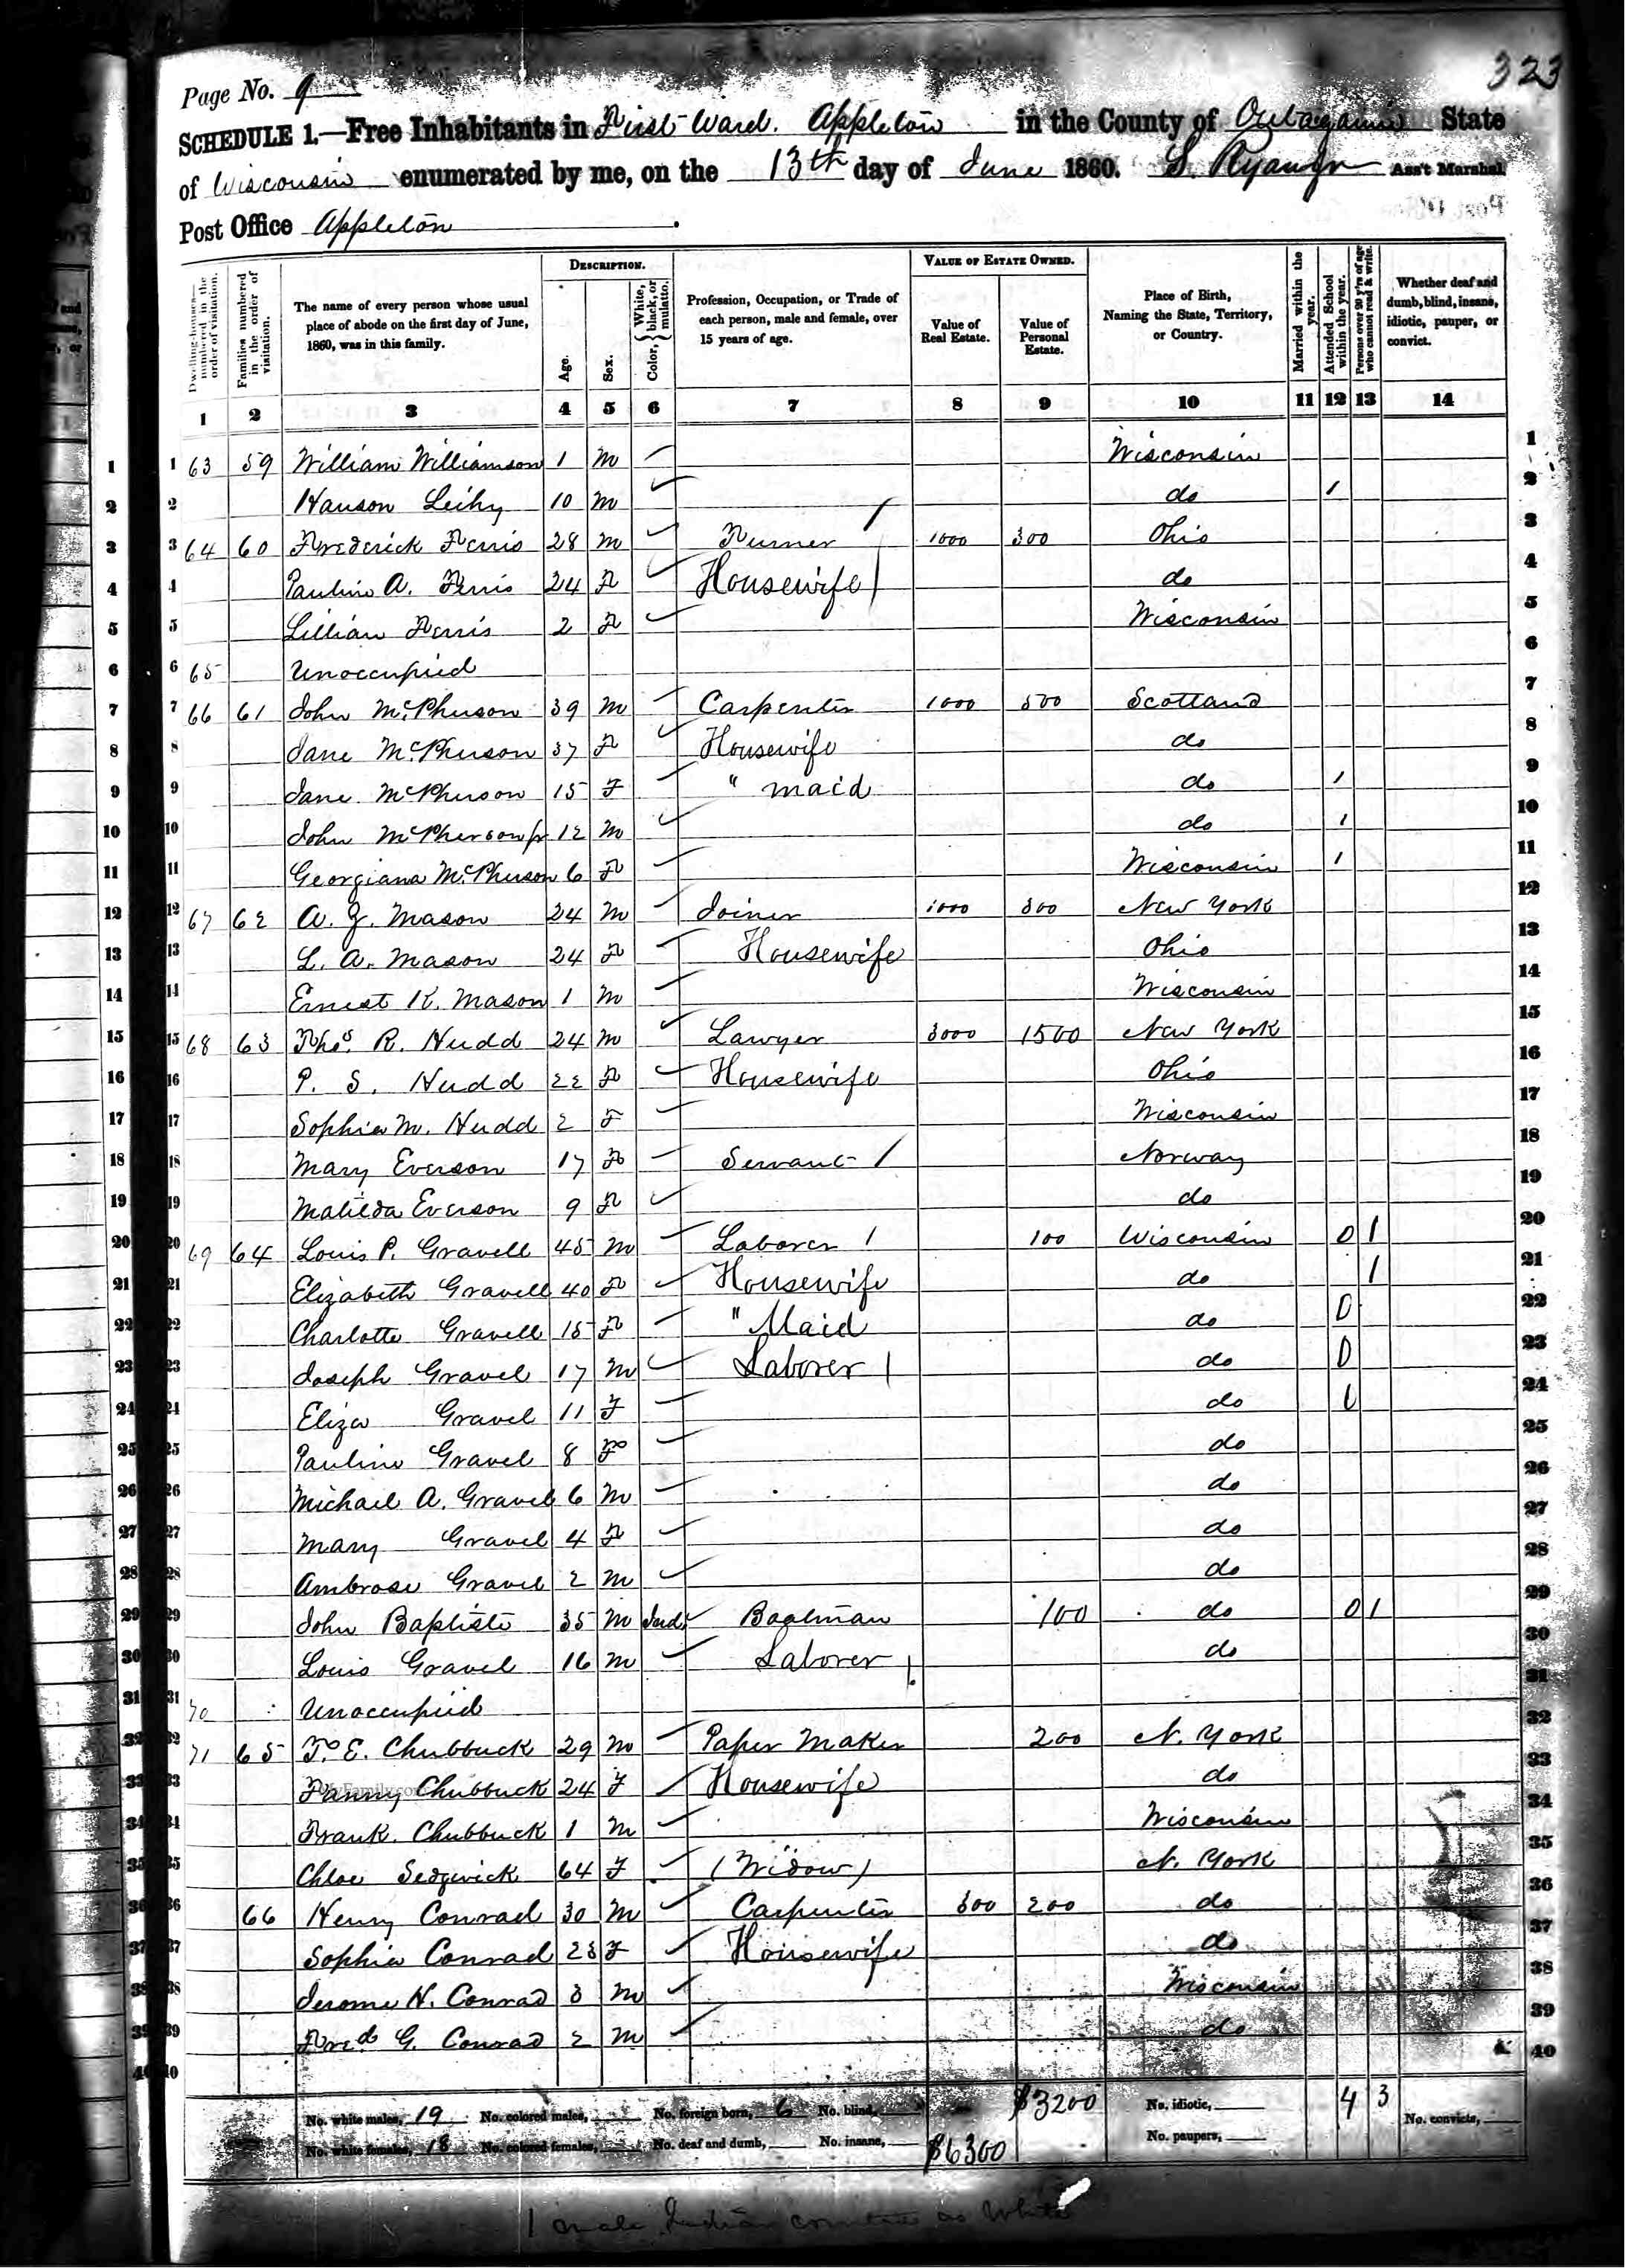 323
Page No. 9
SCHEDULE 1.—Free Inhabitants in First Ward. Appleton in the County of Outagamie State
of Wisconsin enumerated by me, on the 13th day of June 1860. S. Ryan Jr Ass't Marshal
Post Office Appleton.
Dwelling-houses— numbered in the order of visitation.
Families numbered in the order of visitation.
The name of every person whose usual place of abode on the first day of June, 1860, was in this family.
DESCRIPTION.
Age.
Sex.
Color, { White, black, or mulatto.
Profession, Occupation, or Trade of each person, male and female, over 15 years of age.
VALUE OF ESTATE OWNED.
Value of Real Estate.
Value of Personal Estate.
Place of Birth, Naming the State, Territory, or Country.
Married within the year.
Attended School within the year.
Persons over 20 y'rs of age who cannot read & write.
Whether deaf and dumb, blind, insane, idiotic, pauper, or convict.
1 2 3 4 5 6 7 8 9 10 11 12 13 14
1 63 59 William Williamson 1 M Wisconsin 1
2 Hauson Leihy 10 M do 1 2
3 64 60 Frederick Ferris 28 M Turner 1000 300 Ohio 3
4 Pauline A. Ferris 24 F Housewife do 4
5 Lillian Ferris 2 F Wisconsin 5
6 65 Unoccupied 6
7 66 61 John McPherson 39 M Carpenter 1000 500 Scotland 7
8 Jane McPherson 37 F Housewife do 8
9 Jane McPherson 15 F " maid do 1 9
10 John McPherson jr 12 M do 1 10
11 Georgiana McPherson 6 F Wisconsin 1 11
12 67 62 A. J. Mason 24 M Joiner 1000 300 New York 12
13 L. A. Mason 24 F Housewife Ohio 13
14 Ernest K. Mason 1 M Wisconsin 14
15 68 63 Thos. R. Hudd 24 M Lawyer 3000 1500 New York 15
16 P. S. Hudd 22 F Housewife Ohio 16
17 Sophia M. Hudd 2 F Wisconsin 17
18 Mary Everson 17 F Servant Norway 18
19 Matilda Everson 9 F do 19
20 69 64 Louis P. Gravell 45 M Laborer 100 Wisconsin 0 1 20
21 Elizabeth Gravell 40 F Housewife do 1 21
22 Charlotte Gravell 15 F " Maid do 0 22
23 Joseph Gravel 17 M Laborer do 0 23
24 Eliza Gravel 11 F do 24
25 Pauline Gravel 8 F do 25
26 Michael A. Gravel 6 M do 26
27 Mary Gravel 4 F do 27
28 Ambrose Gravel 2 M do 28
29 John Baptiste 35 M Ind. Boatman 100 do 0 1 29
30 Louis Gravel 16 M Laborer do 30
31 70 Unoccupied 31
32 71 65 T. E. Chubbuck 29 M Paper Maker 200 N. York 32
33 Fanny Chubbuck 24 F Housewife do 33
34 Frank. Chubbuck 1 M Wisconsin 34
35 Chloe Sedgwick 64 F (Widow) N. York 35
36 66 Henry Conrad 30 M Carpenter 300 200 do 36
37 Sophia Conrad 28 F Housewife do 37
38 Jerome H. Conrad 3 M Wisconsin 38
39 Fred G. Conrad 2 M do 39
40 40
No. white males, 19 No. colored males, No. foreign born, 6 No. blind, $3200 No. idiotic, 4 3 No. convicts,
No. white females, 18 No. colored females, No. deaf and dumb, No. insane, $6300 No. paupers,
1 male Indian counted as White